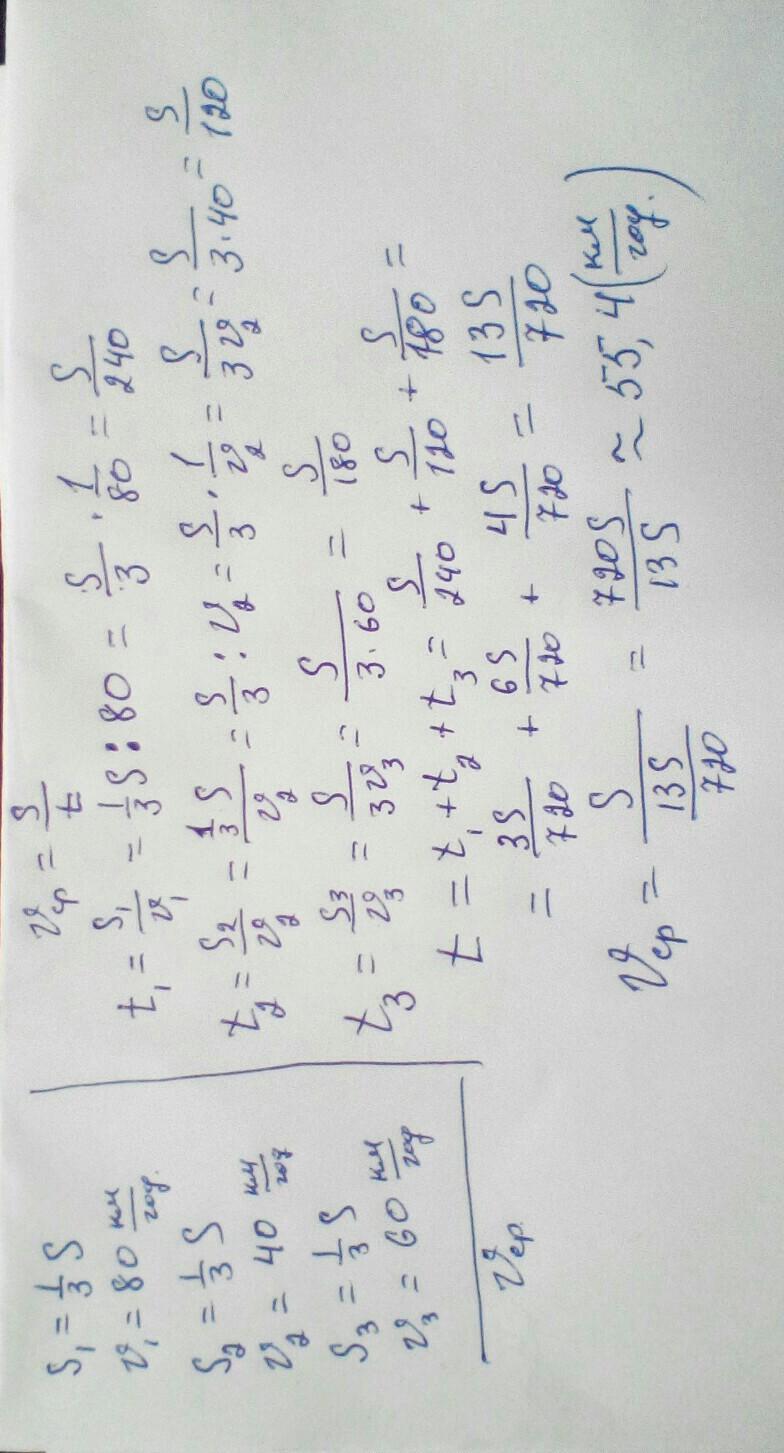 S₁ = 1/3 S
v₁ = 80 км/год.
S₂ = 1/3 S
v₂ = 40 км/год
S₃ = 1/3 S
v₃ = 60 км/год
vср
vср = S/t
t₁ = S₁/v₁ = 1/3 S : 80 = S/3 · 1/80 = S/240
t₂ = S₂/v₂ = (1/3 S)/v₂ = S/3 : v₂ = S/3 · 1/v₂ = S/(3v₂) = S/(3·40) = S/120
t₃ = S₃/v₃ = S/(3v₃) = S/(3·60) = S/180
t = t₁ + t₂ + t₃ = S/240 + S/120 + S/180 =
= 3S/720 + 6S/720 + 4S/720 = 13S/720
vср = S/(13S/720) = 720S/13S ≈ 55,4 (км/год.)